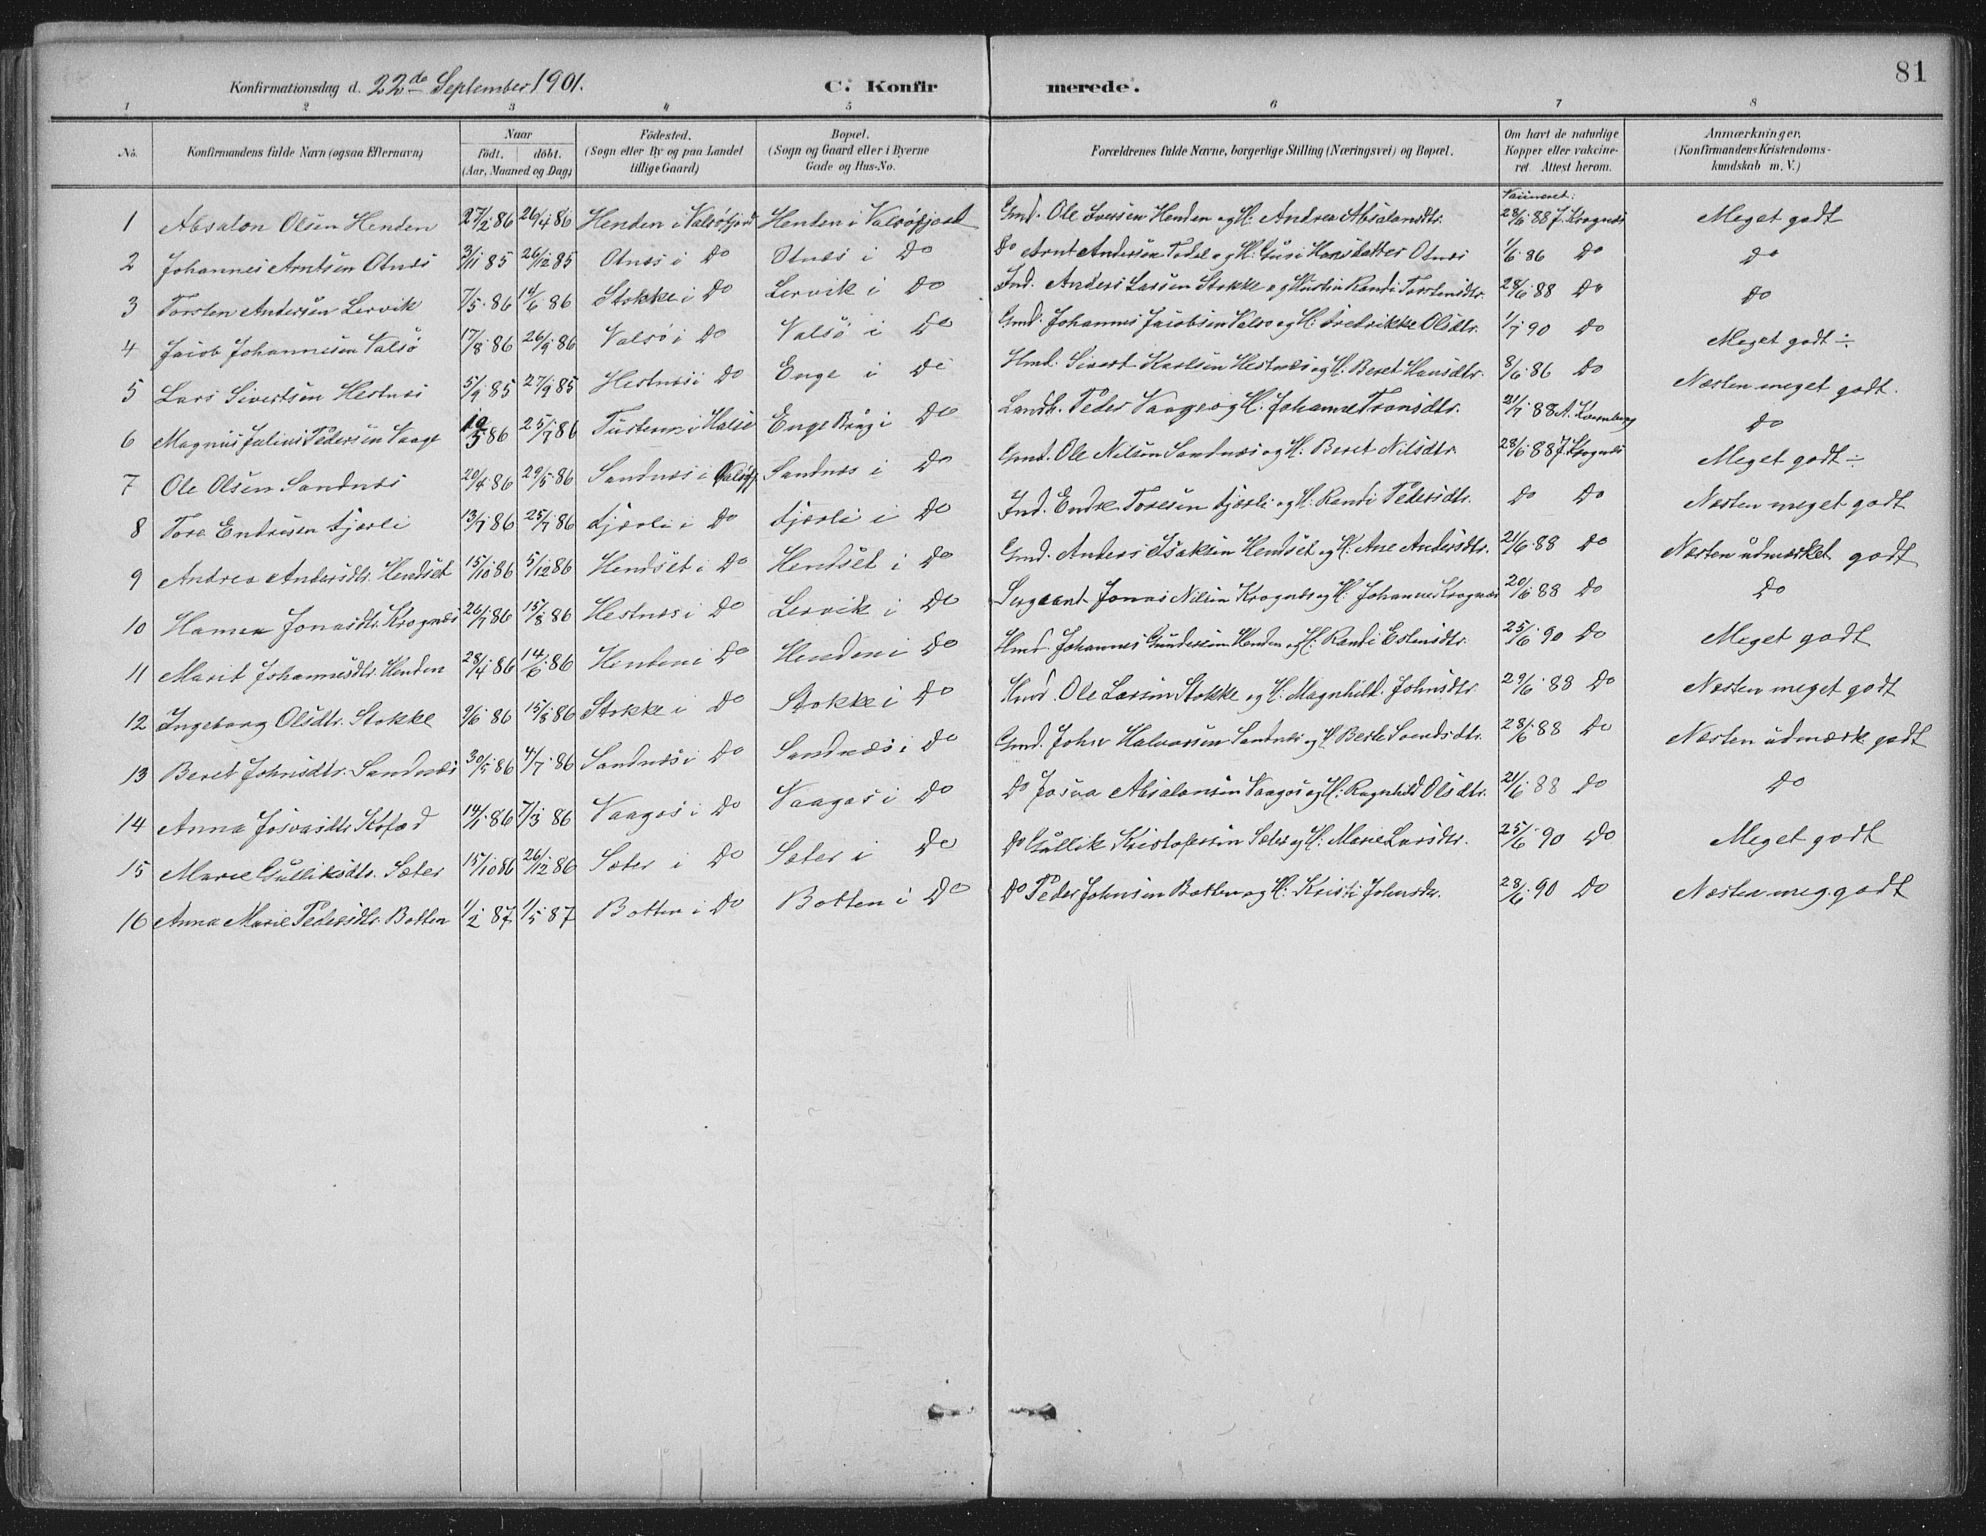 81
Konfirmationsdag d. 22de September 1901. C. Konfirmerede.
1 2 3 4 5 6 7 8
No. Konfirmandens fulde Navn (ogsaa Efternavn) Naar født. døbt. (Aar, Maaned og Dag) Fødested. (Sogn eller By og paa Landet tillige Gaard) Bopæl. (Sogn og Gaard eller i Byerne Gade og Hus-No. Forældrenes fulde Navne, borgerlige Stilling (Næringsvei) og Bopæl. Om havt de naturlige Kopper eller vakcineret. Attest herom. Anmærkninger. (Konfirmandens Kristendomskundskab m. V.)
1 Absalon Olsen Henden 27/2 86 26/4 86 Henden i Valsøfjord Henden i Valsøfjord Gmd. Ole Iversen Henden og H. Andrea Absalondtr. 28/6 88 J. Krognes Meget godt
2 Johannes Arntsen Otnes 3/11 85 26/12 85 Otnes i Do Otnes i Do Do Arnt Andersen Otnes 1/6 86 Do Do
3 Torsten Andersen Lervik 7/5 86 14/6 86 Stokke i Do Lervik i Do Ind. Anders Larsen Stokke og Hustru Randi Torstensdtr. 28/6 88 Do Do
4 Jacob Johannesen Valsø 17/8 86 26/9 86 Valsø i Do Valsø i Do Gmd. Johannes Jacobsen Valsø og H. Fredrikke Olsdtr. 1/7 90 Do Meget godt ÷
5 Lars Sivertsen Hestnes 5/9 85 27/9 85 Hestnes i Do Enge i Do Hmd. Sivert Karlsen Hestnes og H. Beret Hansdtr. 8/6 86 Do Næsten meget godt.
6 Magnus Julius Pedersen Vaage 10/5 86 25/7 86 Tustern i Halse Enge i Do Landh. Peder Vaage og H. Johanne Tronsdtr. 21/7 88 Do
7 Ole Olsen Sandnes 20/4 86 29/5 86 Sandnes i Valsøfj Sandnes i Do Gmd. Ole Nilsen Sandnes og H. Beret Nilsdtr. 28/6 88 J. Krognes Meget godt ÷
8 Tore Endresen Fjærli 13/7 86 25/7 86 Fjærli i Do Fjærli i Do Ind. Endre Toresen Fjærli og H. Randi Pedersdtr. Do Do Næsten meget godt
9 Andrea Andersdtr. Hendset 15/10 86 5/12 86 Hendset i Do Hendset i Do Gmd. Anders Isaksen Hendset og H. Ane Andersdtr. 21/6 88 Do Næsten udmærket godt
10 Jonasdtr. Krognes 26/7 86 15/8 86 Hestnes i Do Lervik i Do Sergeant Jonas Nilsen Krognes og H. Johanne Krognes 20/6 88 Do Do
11 Marit Johannesdtr. Henden 28/4 86 14/6 86 Henden i Do Henden i Do Hmd. Johannes Gundersen Henden og H. Randi Estensdtr. 25/6 90 Do Meget godt
12 Ingeborg Olsdtr. Stokke 9/6 86 15/8 86 Stokke i Do Stokke i Do Hmd. Ole Larsen Stokke og H. Magnhild Johnsdtr. 29/6 88 Do Næsten meget godt
13 Beret Johnsdtr. Sandnes 30/5 86 4/7 86 Sandnes i Do Sandnes i Do Gmd. John Halvorsen Sandnes og H. Svendsdtr. 28/6 88 Do Næsten udmærk. godt
14 Anna Josvasdtr. 14/1 86 7/3 86 Vaagos i Do Vaagos i Do Do Josva Absalonsen Vaagos og H. Ragnhild Olsdtr. 21/6 88 Do Do
15 Marie Gulliksdtr. Sæter 15/10 86 26/12 86 Sæter i Do Sæter i Do Do Gullik Kristofersen Sæter og H. Marie Larsdtr. 25/6 90 Do Meget godt
16 Anna Marie Pedersdtr. Botten 1/2 87 1/5 87 Botten i Do Botten i Do Do Peder Johnsen Botten og H. Kristi Johnsdtr. 28/6 90 Do Næsten meg. godt